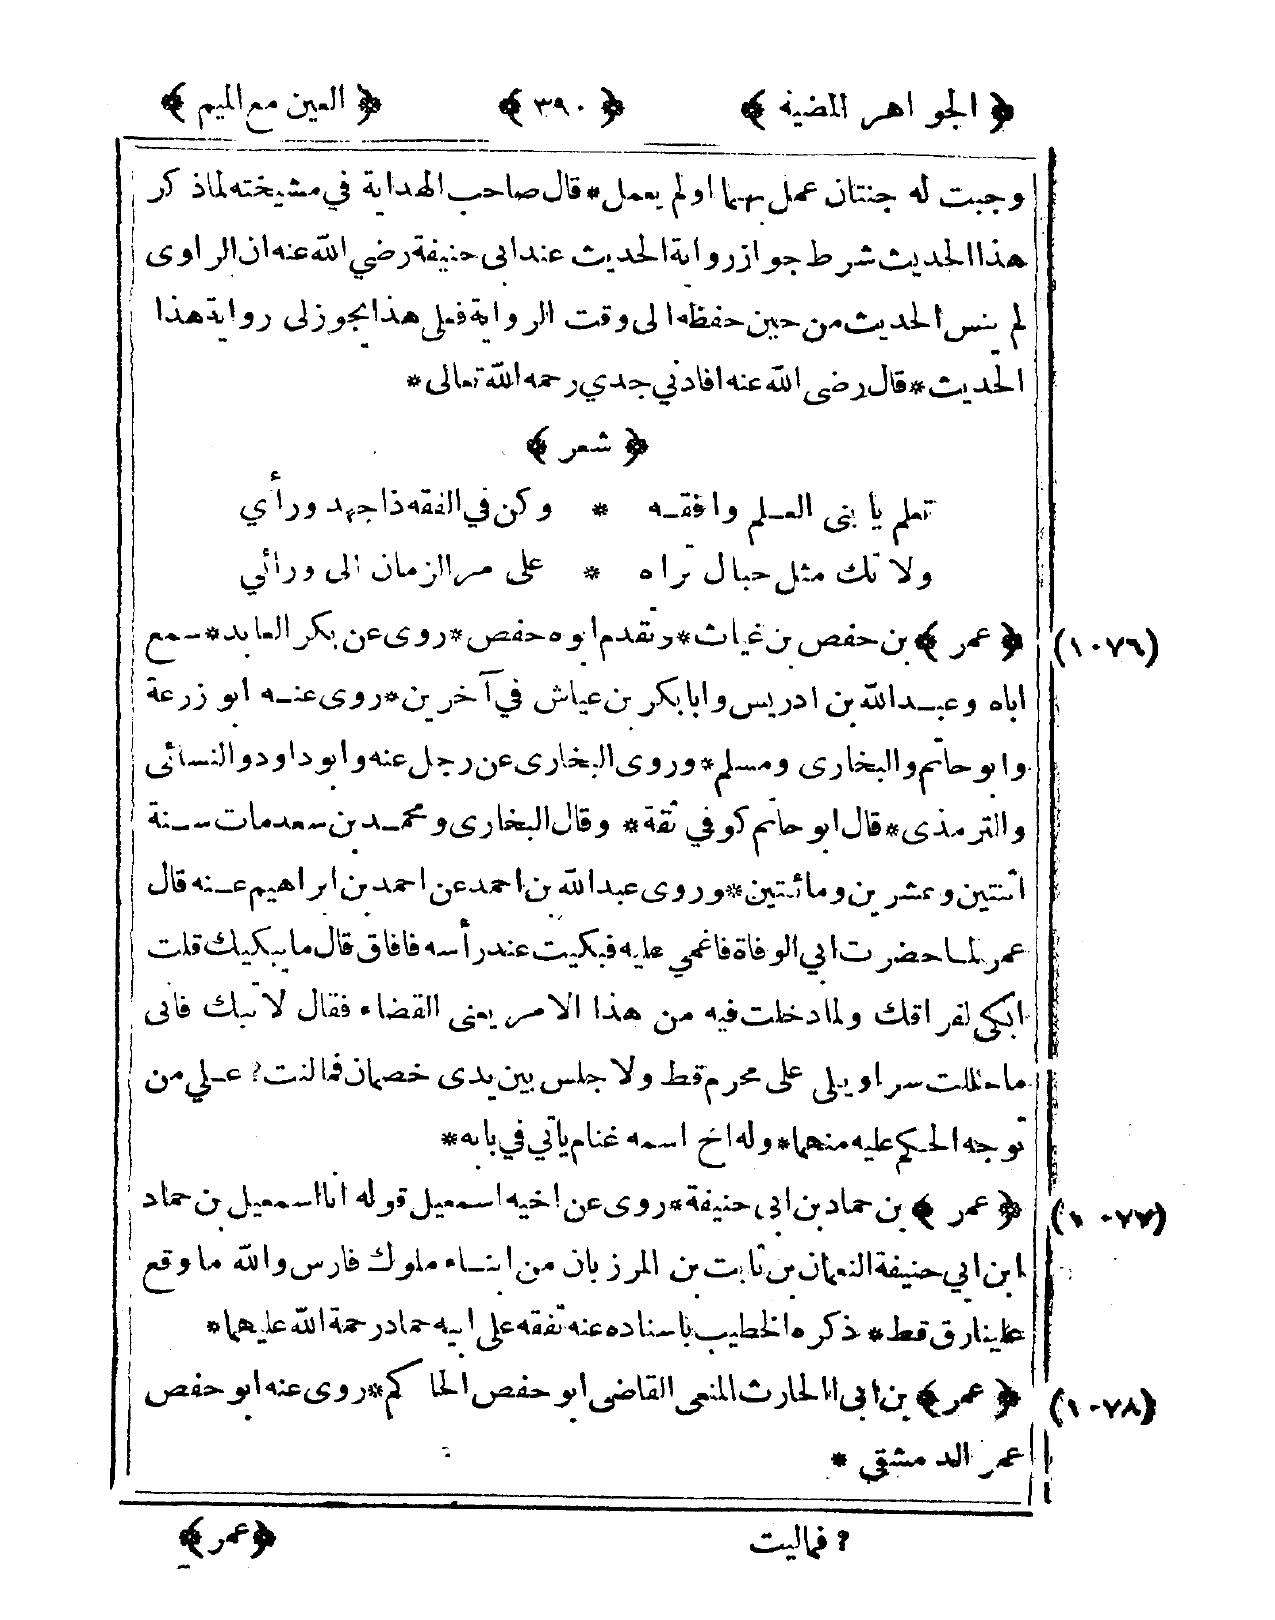 ﴿ الجواهر المضية ﴾ ﴿ ٣٩٠ ﴾ ﴿ العين مع الميم ﴾
وجبت له جنتان عمل بهما اولم يعمل * قال صاحب الهداية في مشيخته لما ذكر
هذا الحديث شرط جواز رواية الحديث عند ابى حنيفة رضي الله عنه ان الراوى
لم ينس الحديث من حين حفظه الى وقت الرواية فعلى هذا يجوز لى رواية هذا
الحديث * قال رضى الله عنه افادني جدي رحمه الله تعالى *
﴿ شعر ﴾
تعلم يا بنى العلم وافقه * وكن في الفقه ذا جهد ورأي
ولا تك مثل حبال تراه * على مر الزمان الى ورائي
(١٠٧٦) ﴿ عمر ﴾ بن حفص بن غياث * وتقدم ابوه حفص * روى عن بكر العابد * سمع
اباه وعبد الله بن ادريس وابا بكر بن عياش في آخرين * روى عنه ابو زرعة
وابو حاتم والبخارى ومسلم * وروى البخارى عن رجل عنه وابو داود والنسائى
والترمذى * قال ابو حاتم كوفي ثقة * وقال البخارى ومحمد بن سعد مات سنة
اثنتين وعشرين ومائتين * وروى عبد الله بن احمد عن احمد بن ابراهيم عنه قال
عمر لما حضرت ابي الوفاة فاغمي عليه فبكيت عند رأسه فافاق قال ما يبكيك قلت
ابكى لفراقك ولما دخلت فيه من هذا الامر يعنى القضاء فقال لا تبك فانى
ما حللت سراويلى على محرم قط ولا جلس بين يدى خصمان فمالنت ? علي من
توجه الحكم عليه منهما * وله اخ اسمه غنام يأتي في بابه *
(١٠٧٧) ﴿ عمر ﴾ بن حماد بن ابى حنيفة * روى عن اخيه اسمعيل قوله انا اسمعيل بن حماد
ابن ابي حنيفة النعمان بن ثابت بن المرزبان من ابناء ملوك فارس والله ما وقع
علينا رق قط * ذكره الخطيب باسناده عنه تفقه على ابيه حماد رحمة الله عليهما *
(١٠٧٨) ﴿ عمر ﴾ بن ابى االحارث المنعى القاضى ابو حفص الحاكم * روى عنه ابو حفص
عمر الدمشقي *
? فماليت ﴿ عمر ﴾